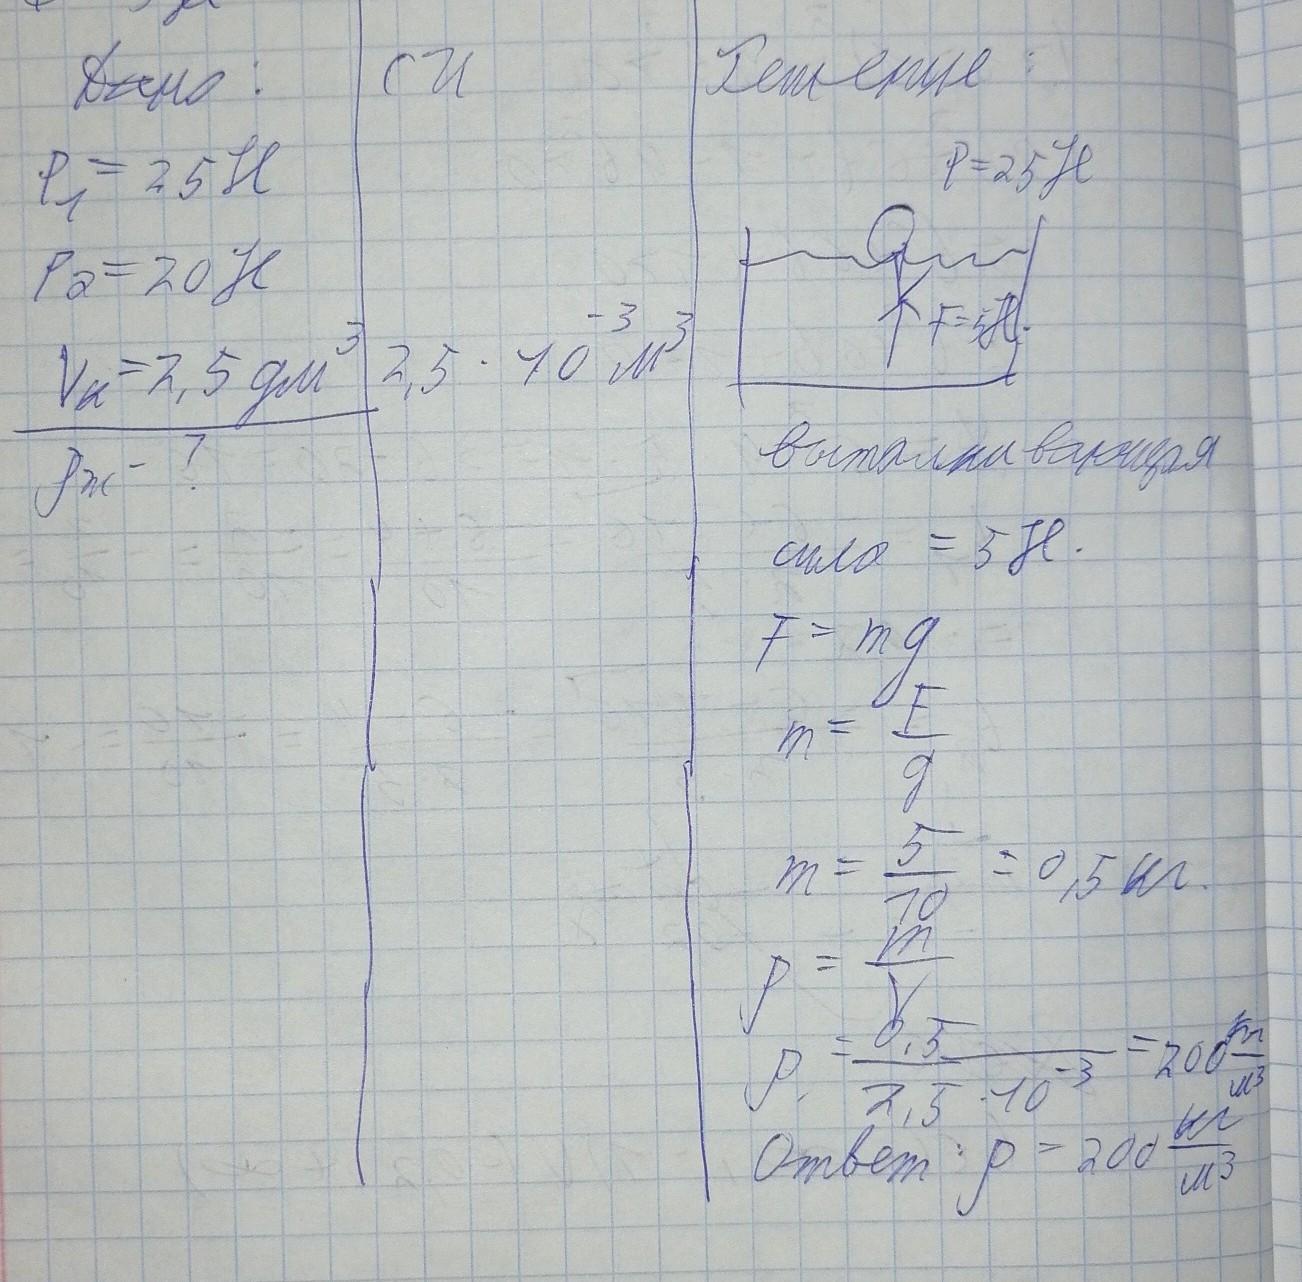 Дано:
СИ
Решение:
P₁ = 25 Н
P₂ = 20 Н
Vк = 2,5 дм³
2,5 · 10⁻³ м³
ρж - ?
P = 25 Н
F = 5 Н.
выталкивающая
сила = 5 Н.
F = mg
m = F/g
m = 5/10 = 0,5 кг.
ρ = m/V
ρ = 0,5/2,5 · 10⁻³ = 200 кг/м³
Ответ: ρ = 200 кг/м³